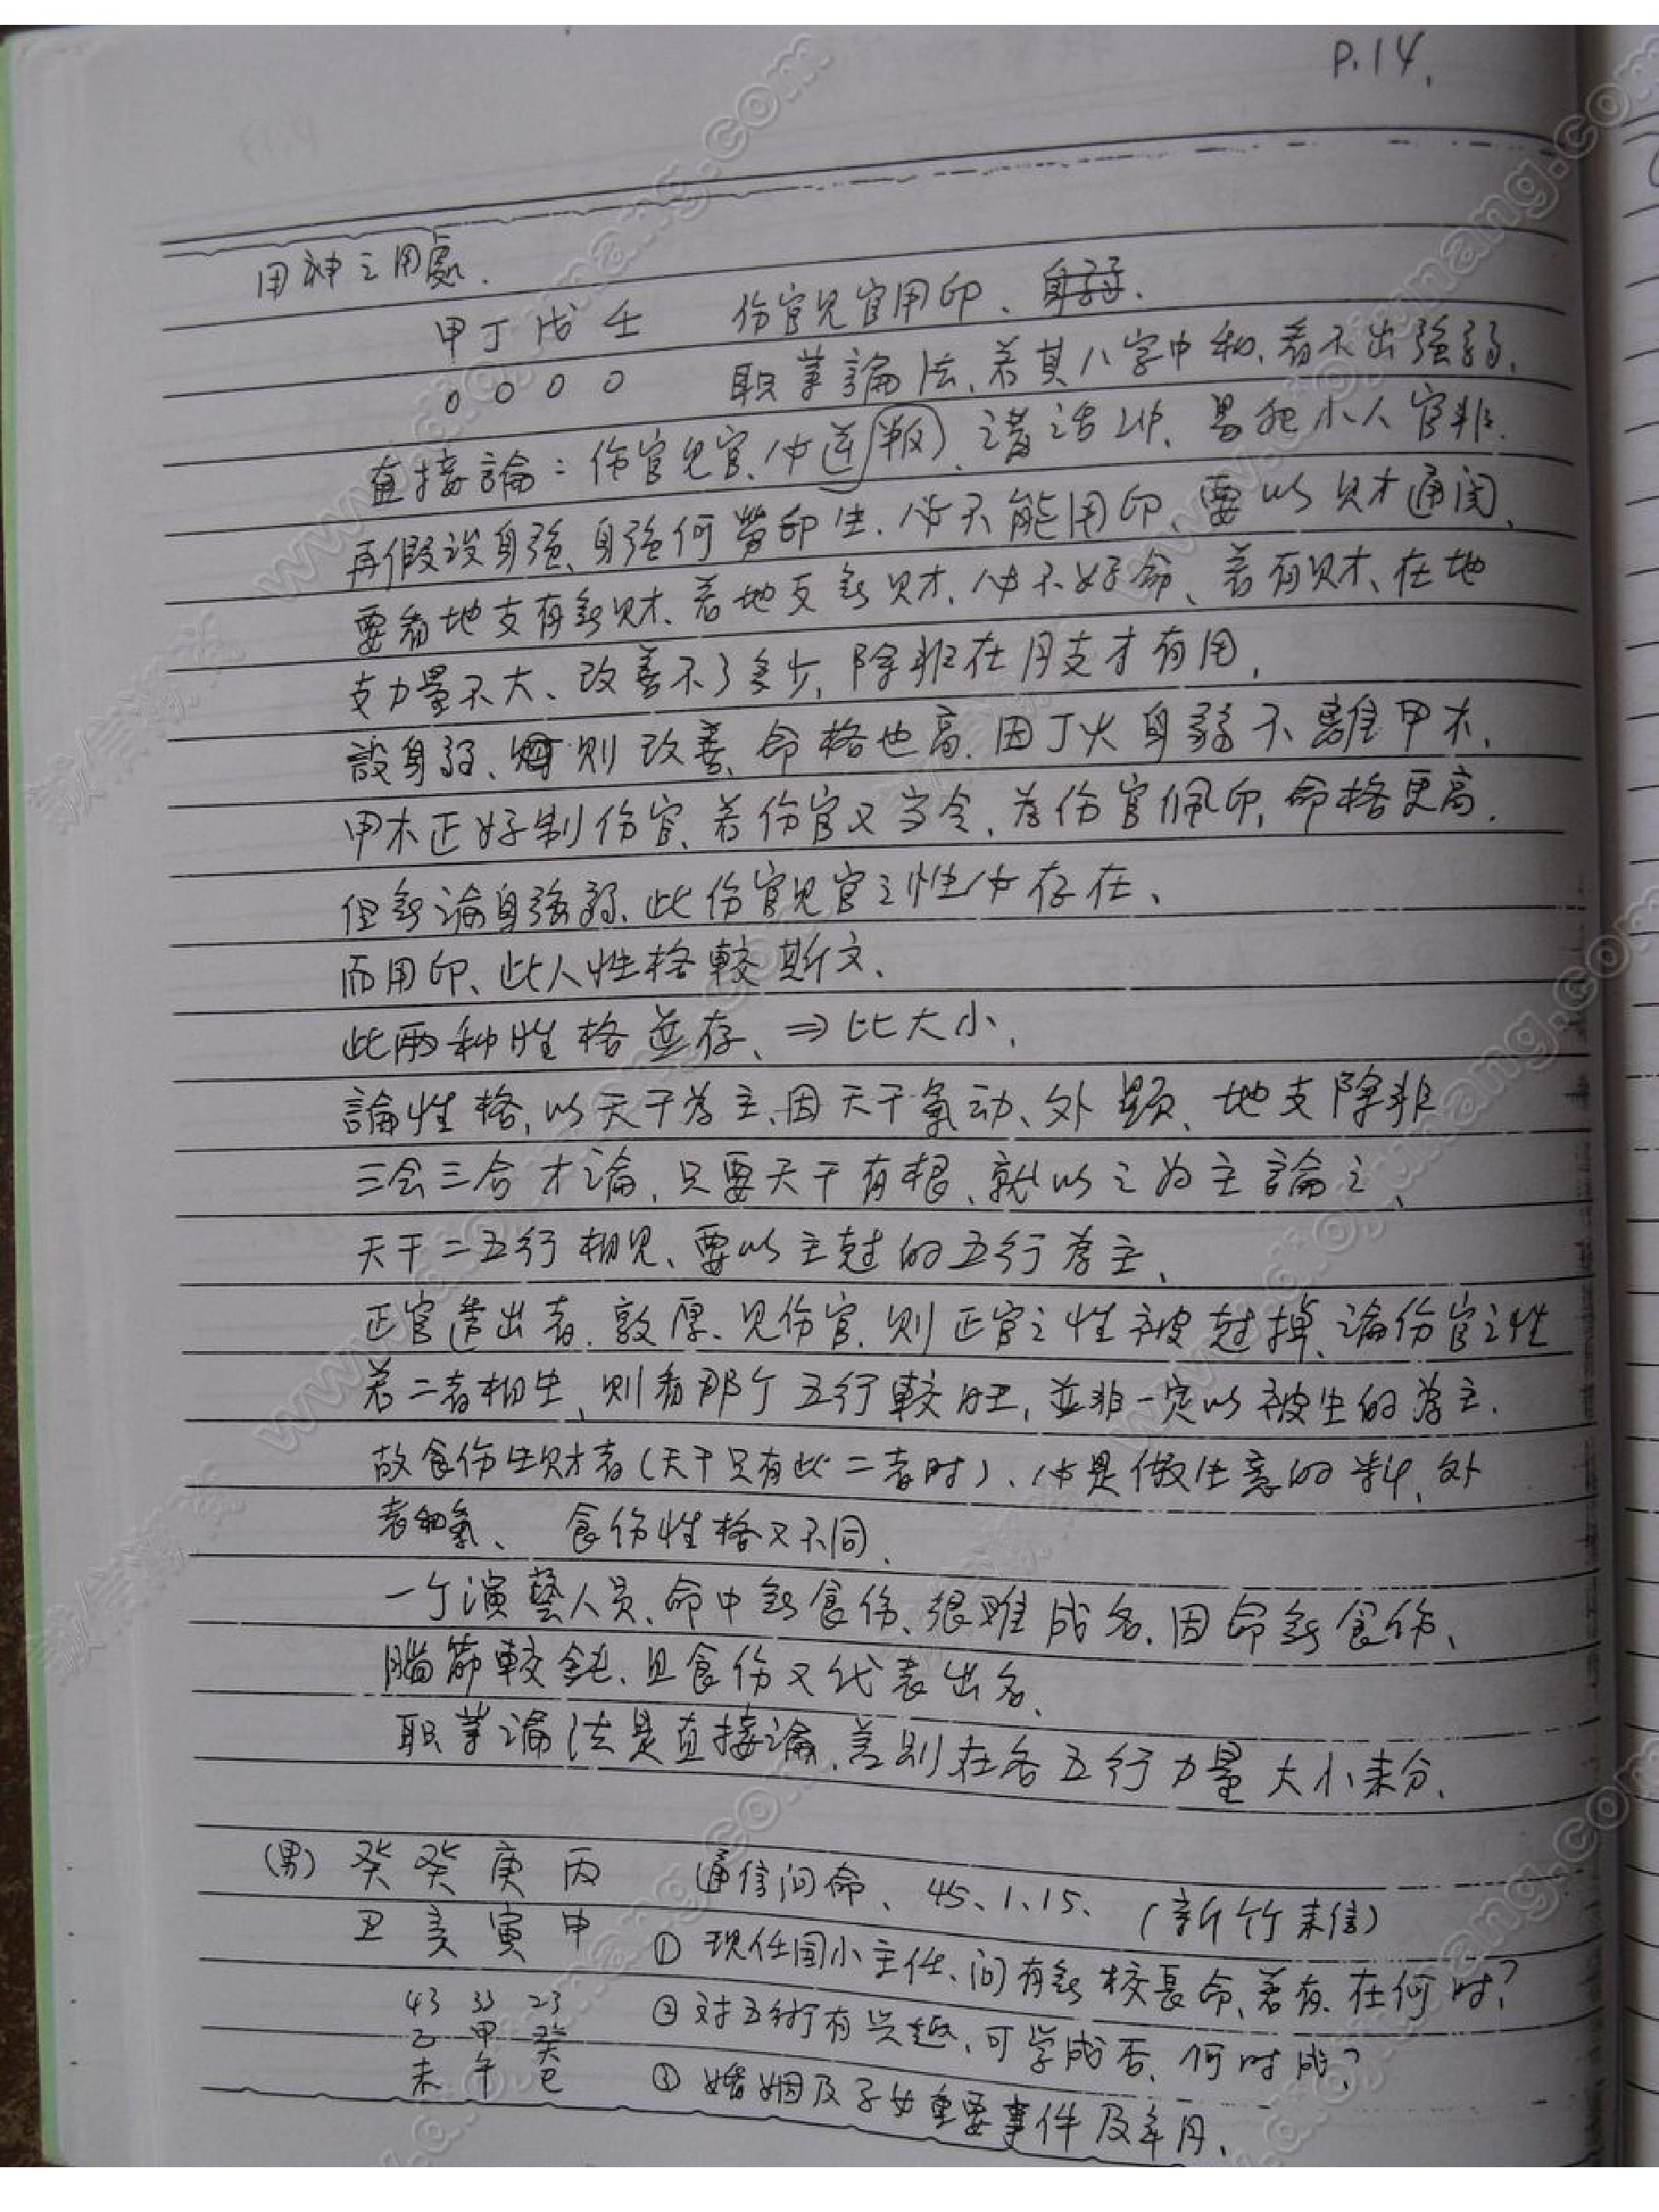 P.14.
用神之用處.
甲丁戊壬 伤官见官用印、身弱.
0 0 0 0 职業論法、若其八字中和、看不出強弱.
直接論：伤官见官、叛逆、講話冲、易犯小人官非.
再假設身強、身強何勞印生、不能用印、要以财才通関、
要看地支有無财、若地支無财、不好命、若有财、在地
支力量不大、改善不了多少、除非在月支才有用.
設身弱、则改善、命格也高、因丁火身弱不離甲木、
甲木正好制伤官、若伤官又当令、為伤官佩印、命格更高.
但無論身強弱、此伤官见官之性存在、
而用印、此人性格較斯文.
此兩种性格並存、⇒比大小.
論性格、以天干為主、因天干氣动、外顕、地支除非
三会三合才論、只要天干有根、就以之为主論之、
天干二五行相见、要以主尅的五行為主、
正官透出者、敦厚、见伤官、则正官之性被尅掉、論伤官之性
若二者相生、则看那个五行較旺、並非一定以被生的為主.
故食伤生财者(天干只有此二者时)、是做生意的料、外
表和氣、 食伤性格又不同.
一个演藝人员、命中無食伤、很难成名、因命無食伤、
腦筋較鈍、且食伤又代表出名、
职業論法是直接論、差别在各五行力量大小来分.
(男) 癸癸庚丙 通信问命、45、1、15、 (新竹来信)
丑亥寅申 ① 現任国小主任、问有無校長命、若有、在何时?
43 33 23 ② 对五術有兴趣、可学成否、何时成?
乙甲癸
未午巳 ③ 婚姻及子女重要事件及年月、